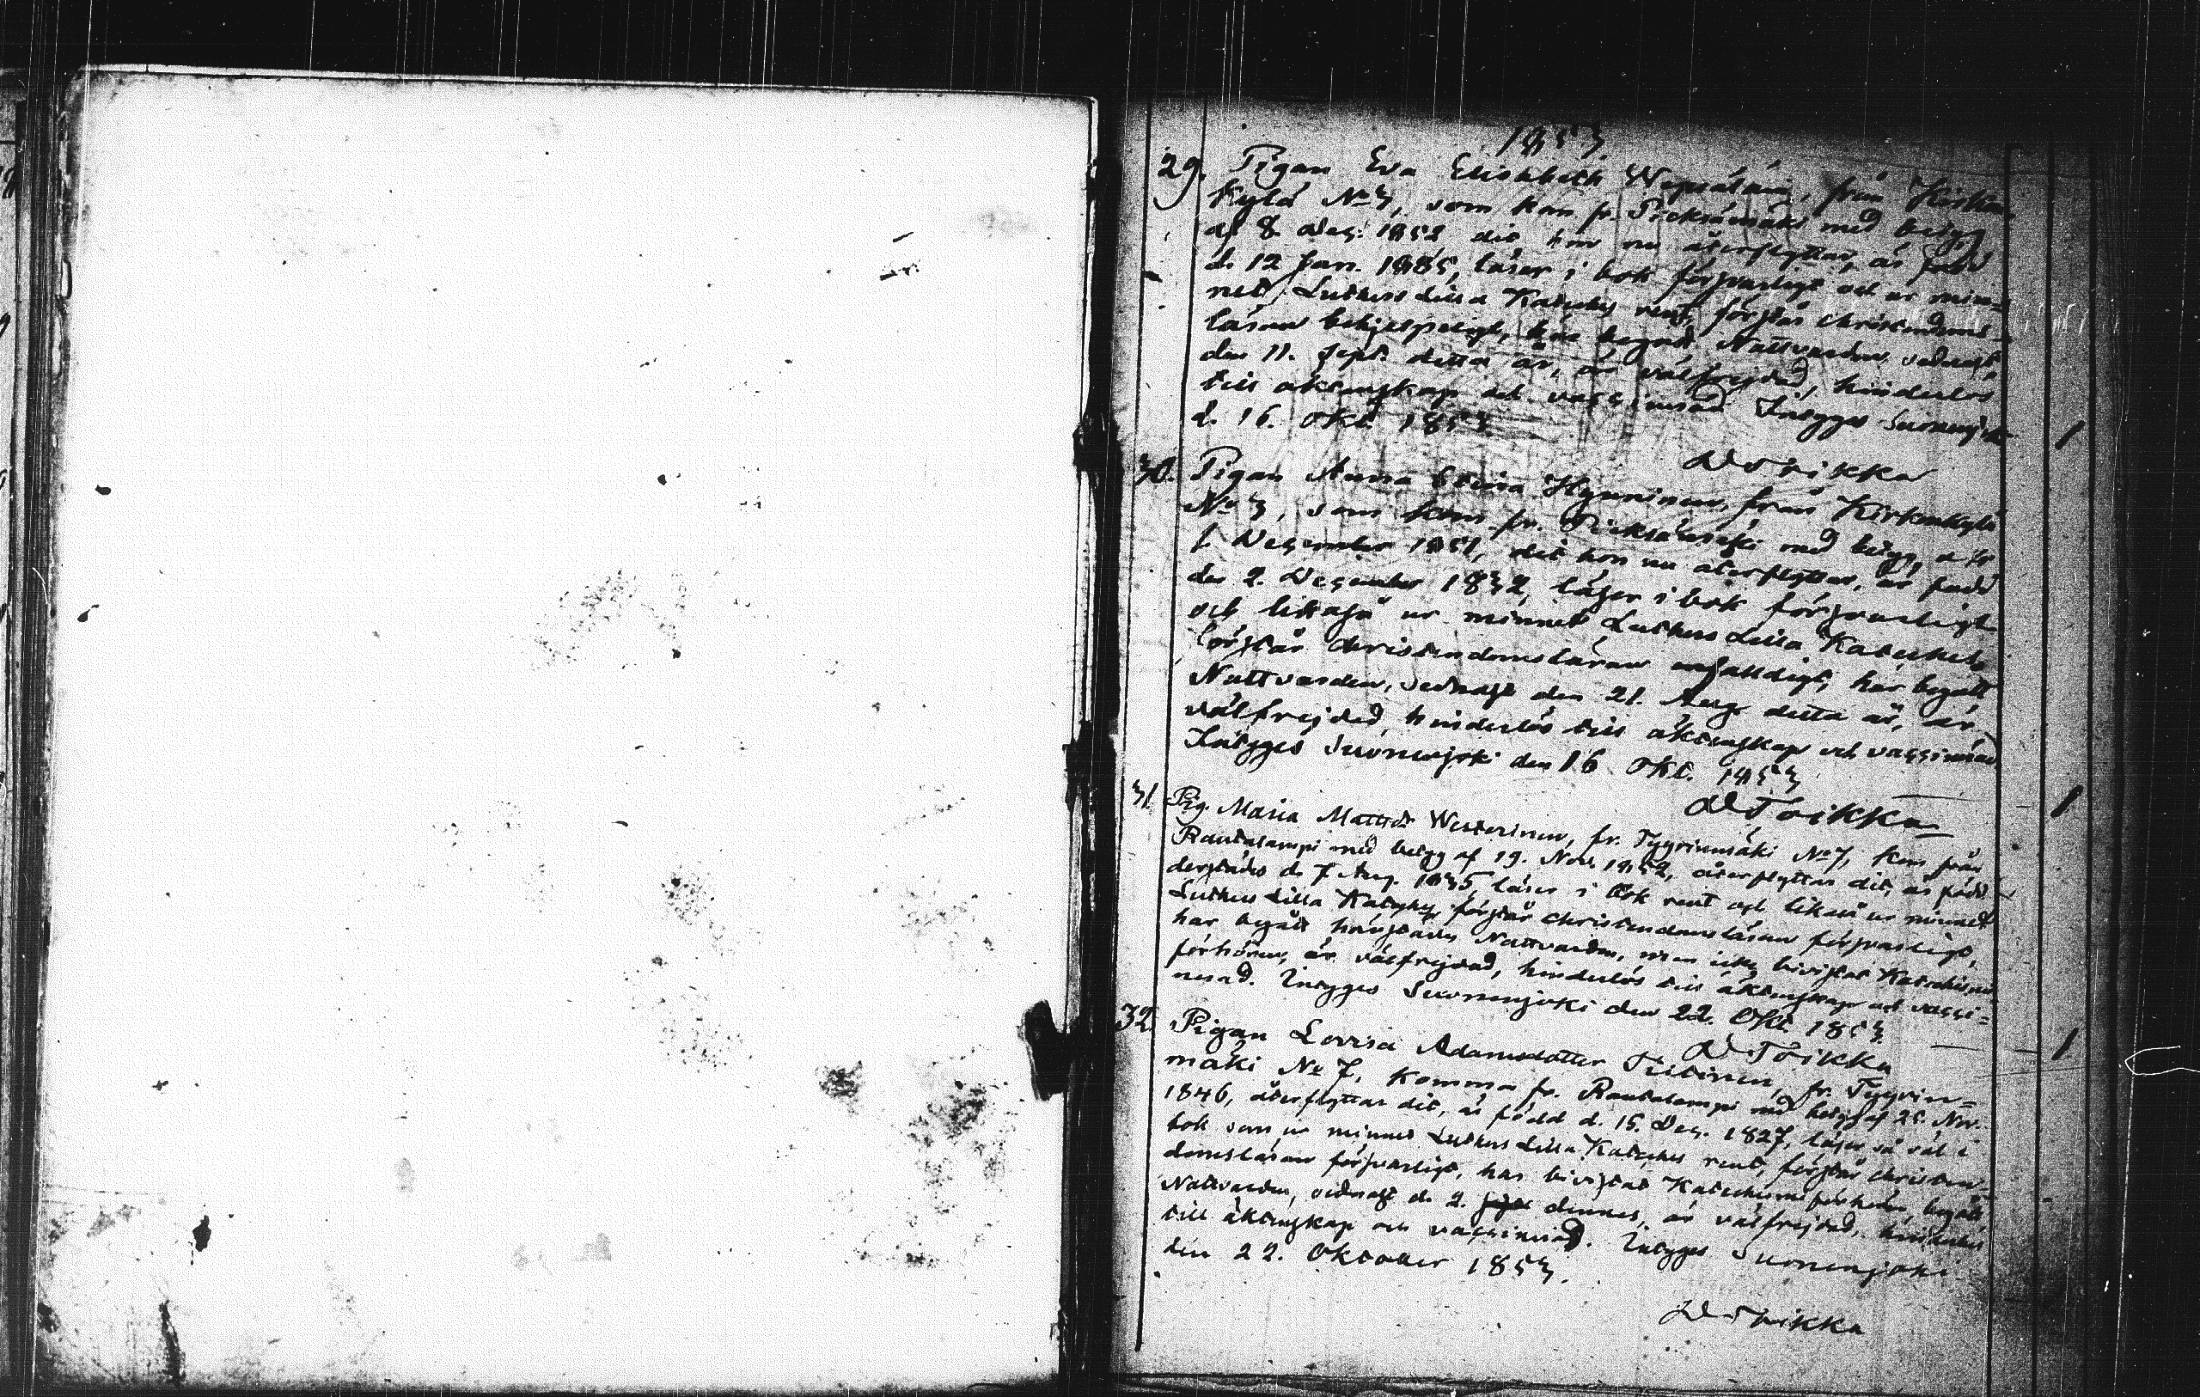 1853.
29. Pigan Eva Elisabeth från Kirkon
Kylä No 3, som kom fr. Pieksämäki med betyg
af 8 Dec. 1852 dit hon nu återflyttar, är född
d. 12 Jan. 1835, läser i bok försvarligt och ur min-
net Luthers Lilla Kateches rent, förstår christendoms-
läran behjelpeligt, har begått Nattvarden sednast
den 11. Sept. detta år, är välfrejdad, hinderlös
till äktenskap och vaccinerad Intygas Suonenjoki
d. 16. Okt. 1853.
D Toikka
30. Pigan Anna Stina Hynninen, från Kirkonkylä
No 3, som kom fr. Pieksämäki med betyg af
December 1851, dit hon nu återflyttar, är född
den 2. December 1832, läser i bok försvarligt
och likaså ur minnet Luthers Lilla Kateches,
förstår christendomsläran enfaldigt, har begått
Nattvarden, sednast den 21. Aug. detta år, är
välfrejdad, hinderlös till äktenskap och vaccinerad
Intygas Suonenjoki den 16 Okt. 1853
D Toikka
31. Pig. Maria Westerinen, fr. Tyyrinmäki No 7, kom från
Rautalampi med betyg af 19. Nov. 1852, återflyttar dit, är född
derstädes d. 7 Aug. 1835, läser i bok rent och likaså ur minnet
Luthers Lilla Kateches, förstår christendomsläran försvarligt,
har begått härstädes Nattvarden, men icke bivistat Katechismi
förhören, är välfrejdad, hinderlös till äktenskap och vacci-
nerad. Intygas Suonenjoki den 22. Okt 1853.
D Toikka
32. Pigan Lovisa Adamsdotter fr. Tyyrin-
mäki No 7, Komma fr. Rautalampi med betyg af 25. Nov.
1846, återflyttar dit, är född d. 15. Dec. 1827, läser så väl i
bok som ur minnet Luthers Lilla Kateches rent, förstår christen-
domsläran försvarligt, har bivistat Katechismi förhören, begått
Nattvarden, sednast d. 2. dennes, är välfrejdad, hinderlös
till äktenskap och vaccinerad. Intygas Suonenjoki
den 22. Oktober 1853.
D Toikka
1
1
1